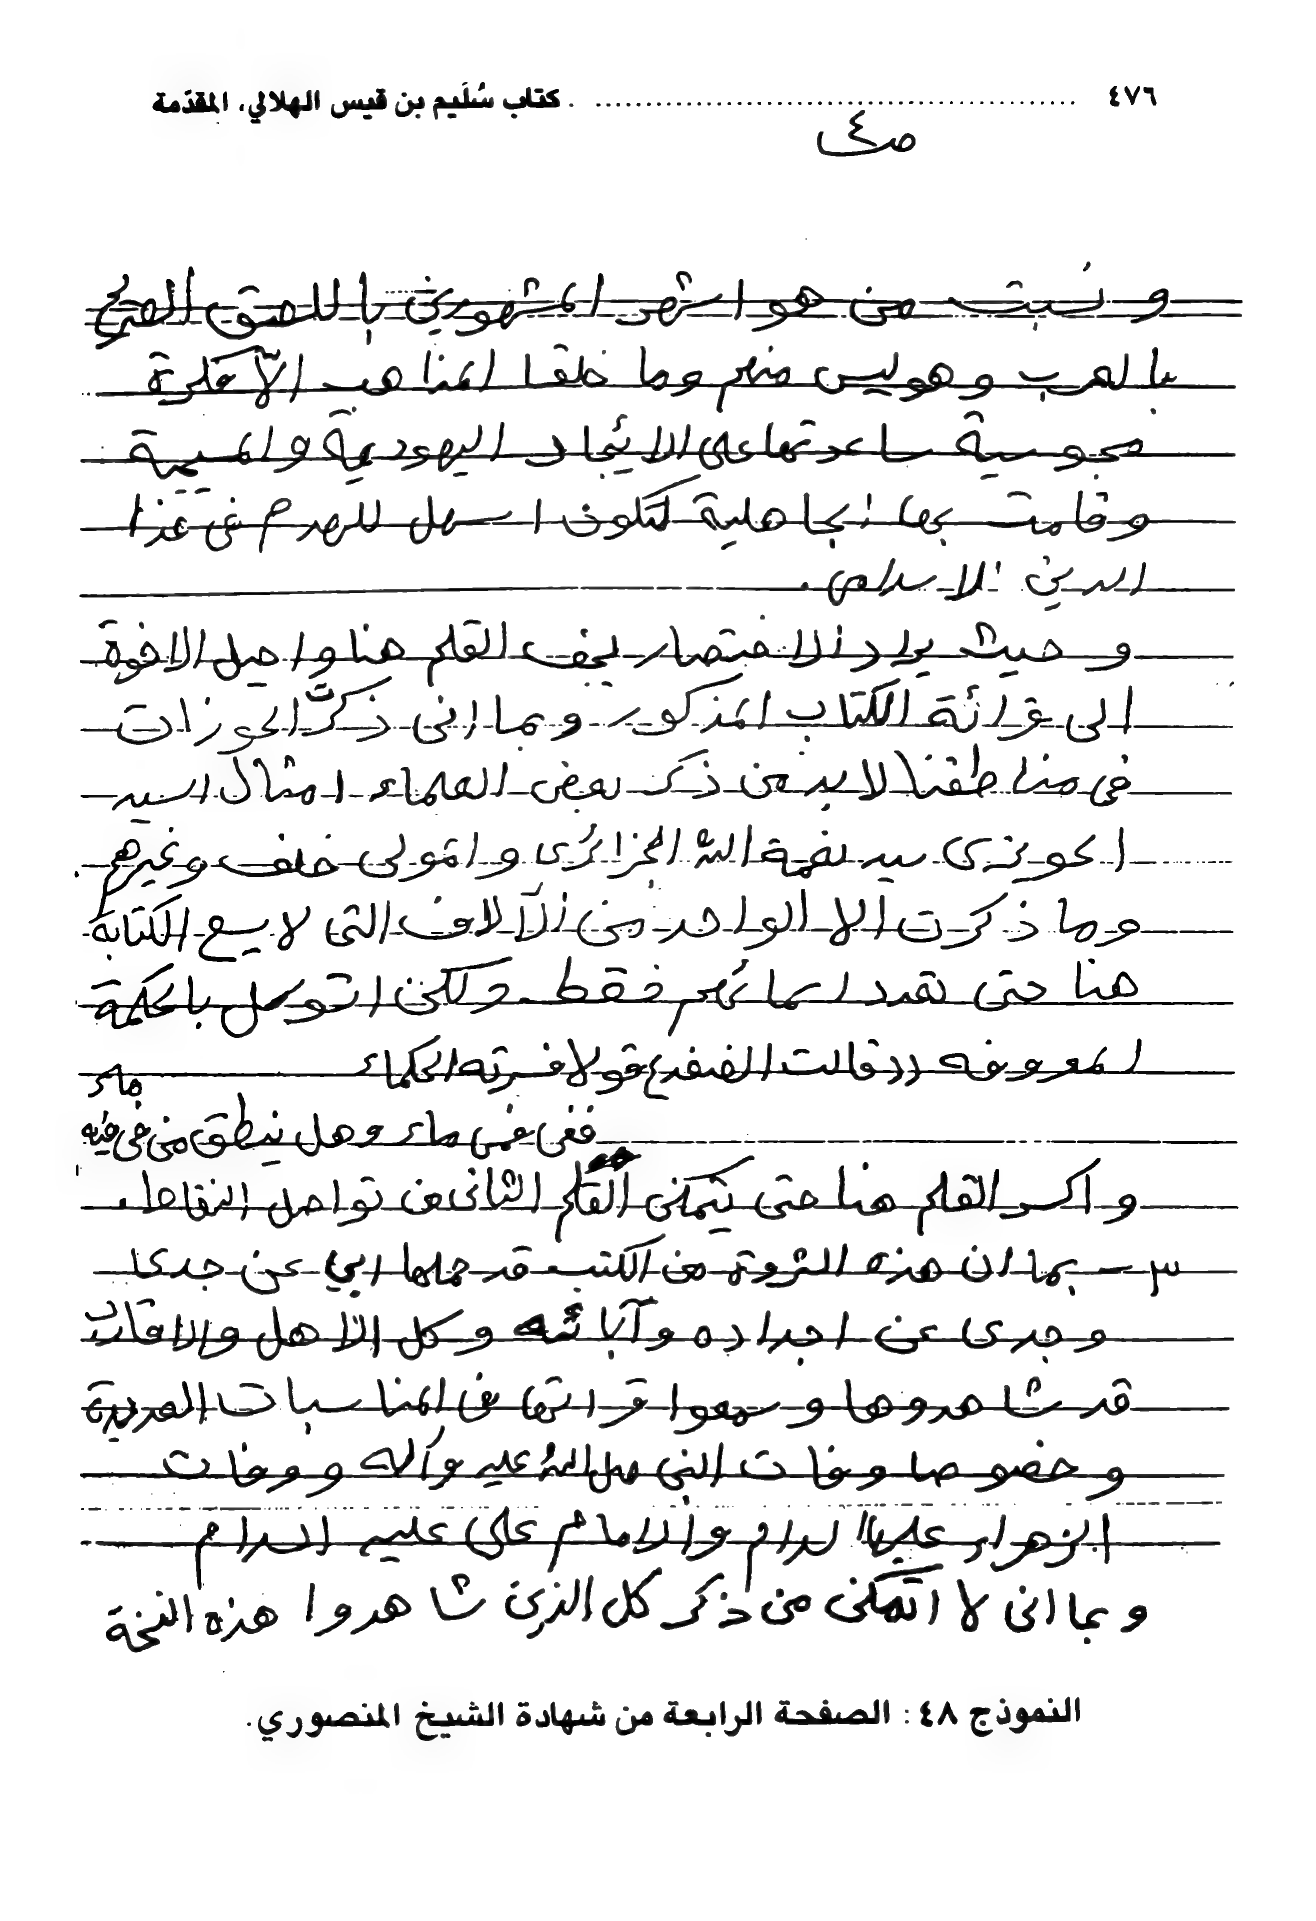 ٤٧٦ ........ كتاب سُلَيم بن قيس الهلالي، المقدّمة
ص٤
و نسبت من هو اشهر المشهورين باللصق الصريح
بالعرب وهو ليس منهم وما خلقا المذاهب الا فكرة
مجوسية ساعدتها على الايجاد اليهودية والمسيحية
و قامت بها الجاهلية لتكون اسهل للهدم في هذا
الدين الاسلامي.
و حيث يراد الاختصار يجف القلم هنا و احيل الاخوة
الى قرائة الكتاب المذكور و بما اني ذكرت الحوزات
في مناطقنا لا بد من ذكر بعض العلماء امثال السيد
الحويزى سيد نعمة الله الجزائرى و المولى خلف وغيرهم
و ما ذكرت الا الواحد من الآلاف التى لا يسع الكتابة
هنا حتى تعدد اسمائهم فقط. ولكن اتوسل بالحكمة
المعروفه ((قالت الضفدع قولا فسرته الحكماء
ففى فمى ماء و هل ينطق من فى فيه ماء
و اكسر القلم هنا حتى يتمكن القلم الثانى من تواصل النقاط.
٣ – بما ان هذه الثروة من الكتب قد حملها ابي عن جدى
و جدى عن اجداده و آبائه و كل الاهل والاقارب
قد شاهدوها و سمعوا قرائتها في المناسبات العديدة
و خصوصا وفات النبي صلى الله عليه وآله و وفات
الزهراء عليها السلام والامام على عليه السلام
و بما انى لا اتمكن من ذكر كل الذين شاهدوا هذه النسخة
النموذج ٤٨: الصفحة الرابعة من شهادة الشيخ المنصوري.